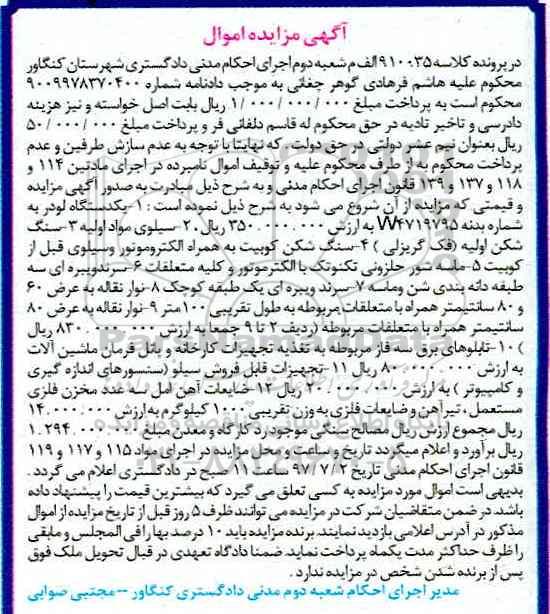 آگهی مزایده اموال
در پرونده کلاسه ۹۱۰۰۳۵ الف م شعبه دوم اجرای احکام مدنی دادگستری شهرستان کنگاور
محکوم علیه هاشم فرهادی گوهر چغائی به موجب دادنامه شماره ۹۰۰۹۹۷۸۳۷۰۴۰۰
محکوم است به پرداخت مبلغ ۱/۰۰۰/۰۰۰/۰۰۰ ریال بابت اصل خواسته و نیز هزینه
دادرسی و تاخیر تادیه در حق محکوم له قاسم دلفانی فر و پرداخت مبلغ ۵۰/۰۰۰/۰۰۰
ریال بعنوان نیم عشر دولتی در حق دولت، که نهایتا با توجه به عدم سازش طرفین و عدم
پرداخت محکوم به از طرف محکوم علیه و توقیف اموال نامبرده در اجرای مادتین ۱۱۴ و
۱۱۸ و ۱۳۷ و ۱۳۹ قانون اجرای احکام مدنی و به شرح ذیل مبادرت به صدور آگهی مزایده
و قیمتی که مزایده از آن شروع می شود به شرح ذیل نموده است : ۱-یکدستگاه لودر به
شماره بدنه ۷۷۴۷۱۹۷۹۵ به ارزش ۳۵۰.۰۰۰.۰۰۰ ریال ۲-سیلوی مواد اولیه ۳-سنگ
شکن اولیه (فک گریزلی) ۴-سنگ شکن کوبیت به همراه الکتروموتور وسیلوی قبل از
کوبیت ۵-ماسه شور حلزونی تکنوتک با الکتروموتور و کلیه متعلقات ۶-سرندویبره ای سه
طبقه دانه بندی شن وماسه ۷-سرند ویبره ای یک طبقه کوچک ۸-نوار نقاله به عرض ۶۰
و ۸۰ سانتیمتر همراه با متعلقات مربوطه به طول تقریبی ۱۰۰متر ۹-نوار نقاله به عرض ۸۰
سانتیمتر همراه با متعلقات مربوطه (ردیف ۲ تا ۹ جمعا به ارزش ۸۳۰.۰۰۰.۰۰۰ ریال
) ۱۰-تابلوهای برق سه فاز مربوطه به تغذیه تجهیزات کارخانه و پانل فرمان ماشین آلات
به ارزش ۸۰.۰۰۰.۰۰۰ ریال ۱۱-تجهیزات قابل فروش سیلو (سنسورهای اندازه گیری
و کامپیوتر) به ارزش ۲۰.۰۰۰.۰۰۰ ریال ۱۲-ضایعات آهن آمل سه عدد مخزن فلزی
مستعمل، تیرآهن و ضایعات فلزی به وزن تقریبی ۱۰۰۰ کیلوگرم به ارزش ۱۴.۰۰۰.۰۰۰
ریال مجموع ارزش ریال مصالح سنگی موجود در کارگاه و معدن مبلغ ۱.۲۹۴.۰۰۰.۰۰۰
ریال برآورد و اعلام میگردد تاریخ و ساعت و محل مزایده در اجرای مواد ۱۱۵ و ۱۱۷ و ۱۱۹
قانون اجرای احکام مدنی تاریخ ۹۷/۷/۲ ساعت ۱۱ صبح در دادگستری اعلام می گردد.
بدیهی است اموال مورد مزایده به کسی تعلق می گیرد که بیشترین قیمت را پیشنهاد داده
باشد. در ضمن متقاضیان شرکت در مزایده می توانند ظرف ۵ روز قبل از تاریخ مزایده از اموال
مذکور در آدرس اعلامی بازدید نمایند. برنده مزایده باید ۱۰ درصد بها را فی المجلس و مابقی
را ظرف حداکثر مدت یکماه پرداخت نماید. ضمنا دادگاه تعهدی در قبال تحویل ملک فوق
پس از برنده شدن شخص در مزایده ندارد.
مدیر اجرای احکام شعبه دوم مدنی دادگستری کنگاور -- مجتبی صوابی